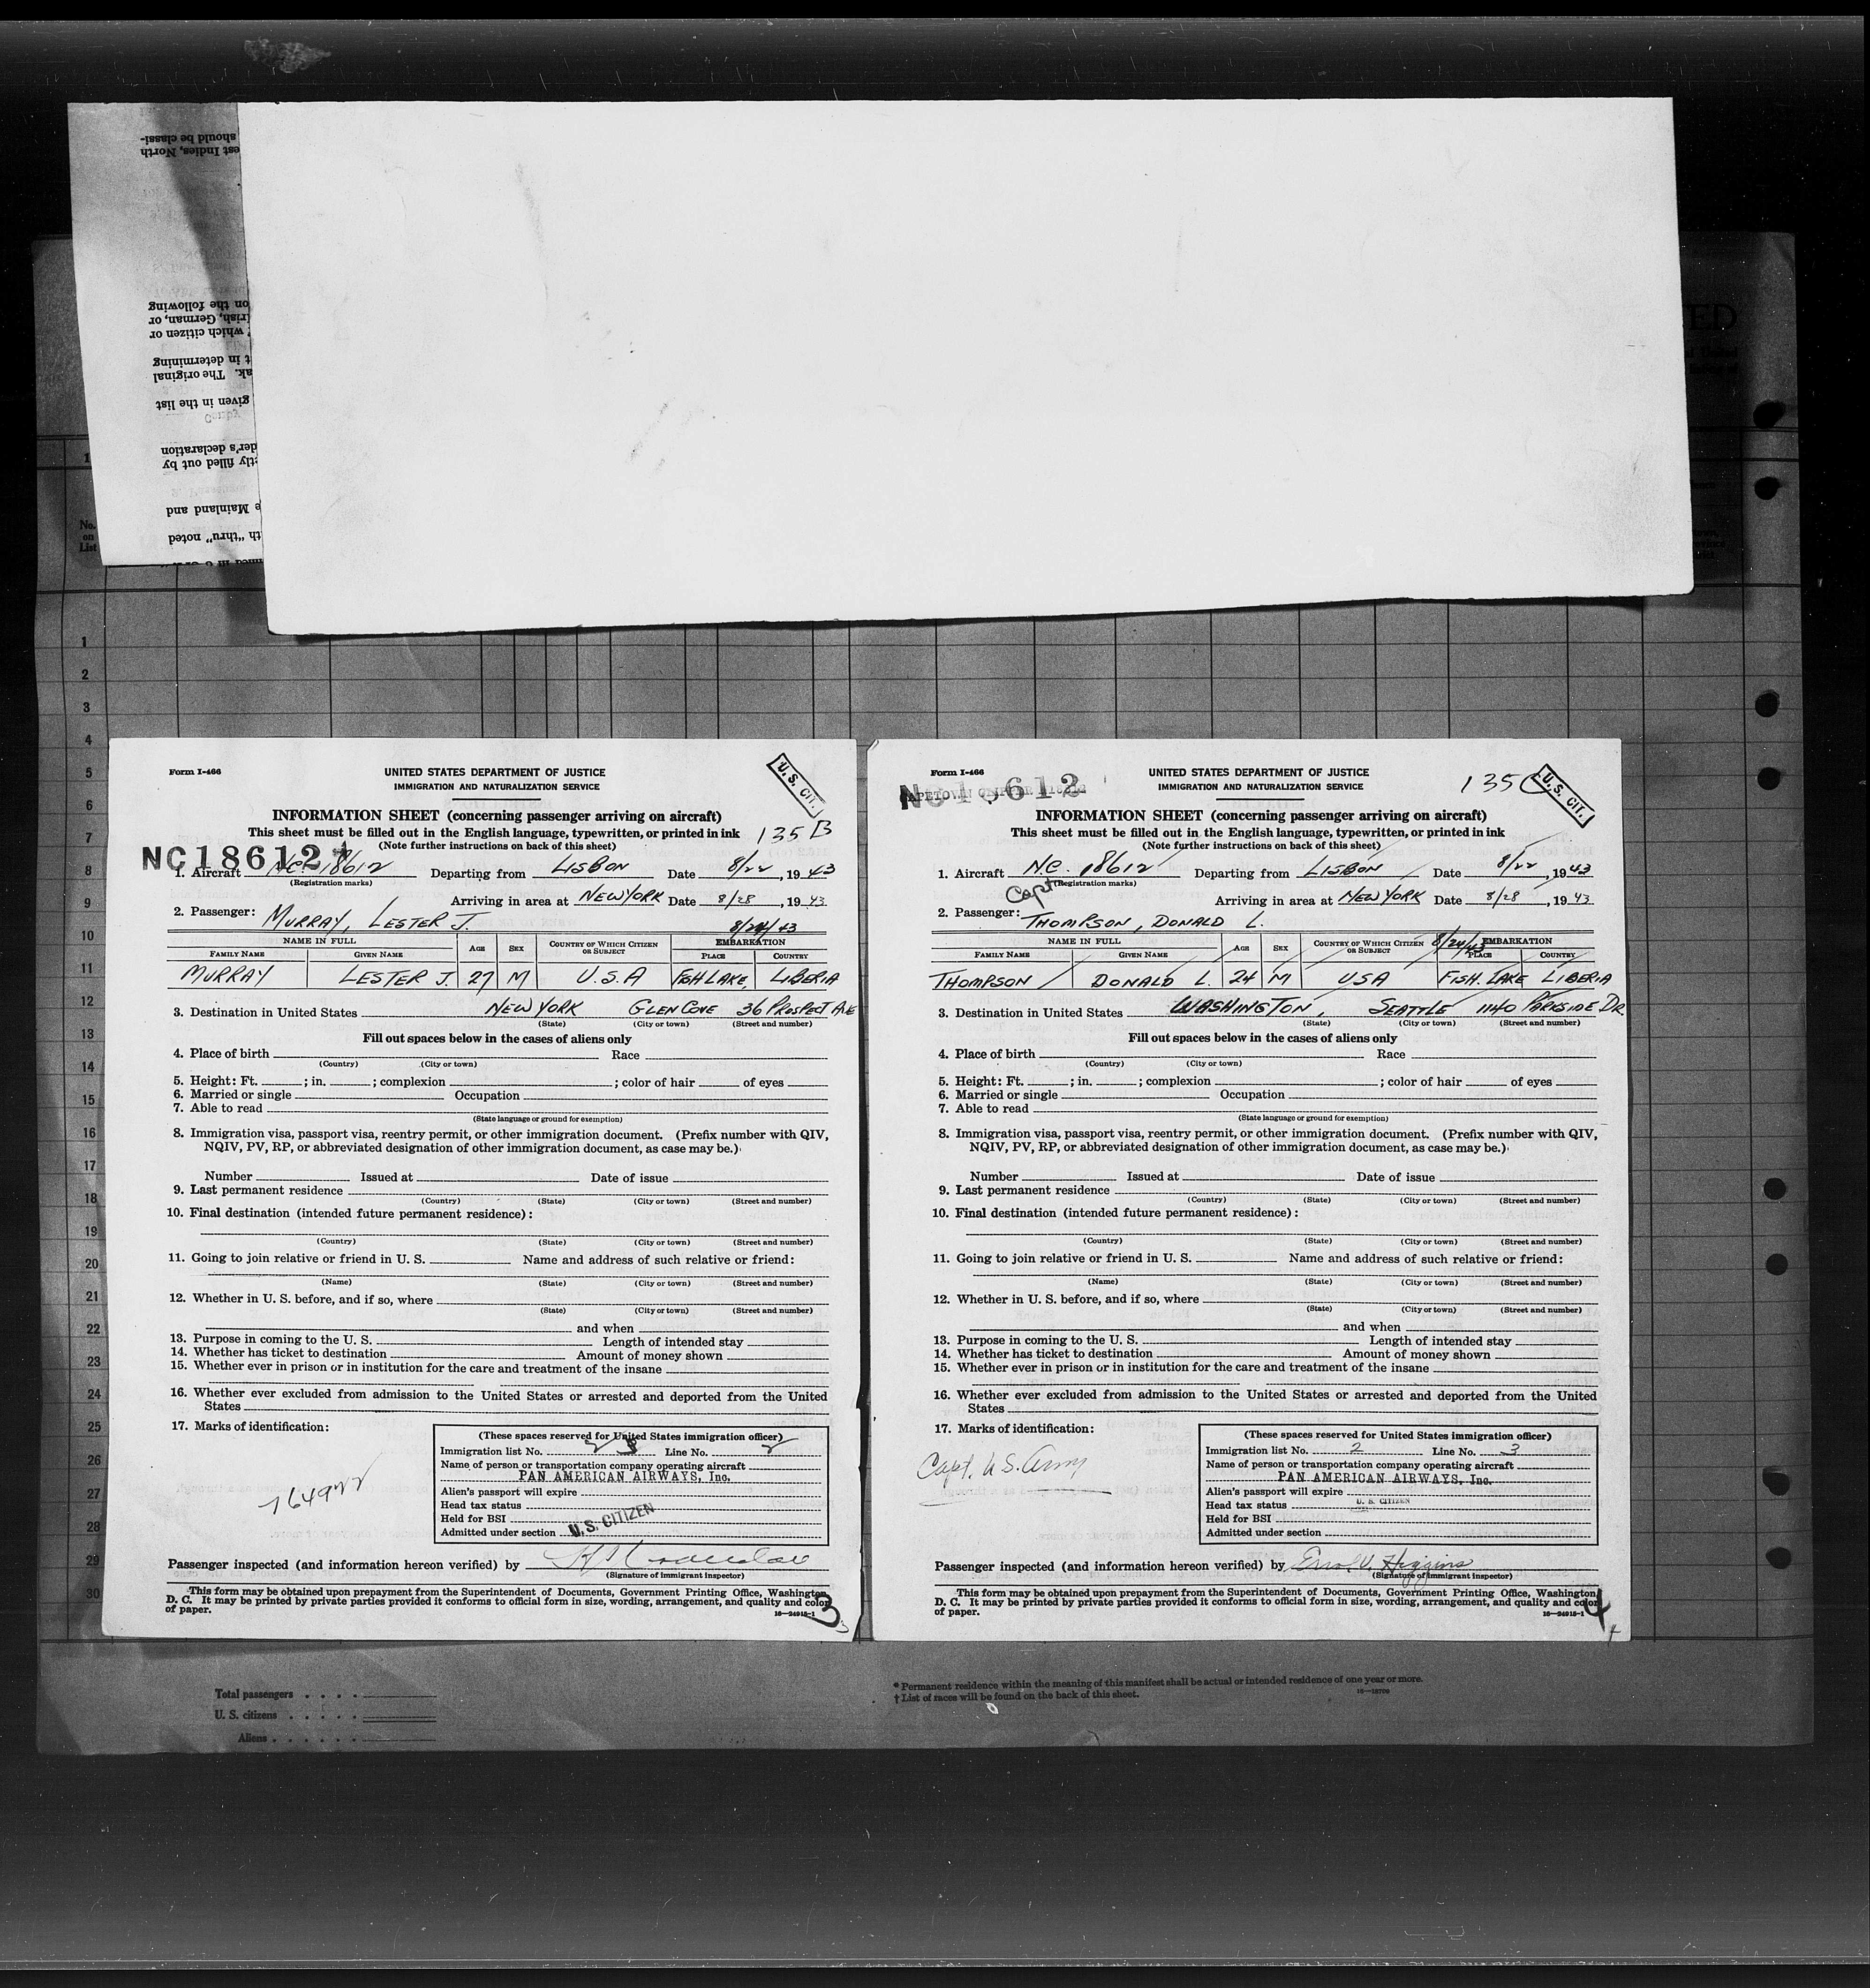 should be classi-
est Indies, North
on the following
rish, German, or
which citizen or
t in determining
ak. The original
given in the list
der's declaration
tly filled out by
e Mainland and
th "thru" noted
ED
No.
on
List
1
2
3
4
5
6
7
8
9
10
11
12
13
14
15
16
17
18
19
20
21
22
23
24
25
26
27
28
29
30
Form I-466
UNITED STATES DEPARTMENT OF JUSTICE
IMMIGRATION AND NATURALIZATION SERVICE
U. S. CIT.
INFORMATION SHEET (concerning passenger arriving on aircraft)
This sheet must be filled out in the English language, typewritten, or printed in ink 135 B
(Note further instructions on back of this sheet)
NC18612
1. Aircraft N.C. 18612 Departing from LISBON Date 8/22, 1943
(Registration marks)
Arriving in area at NEW YORK Date 8/28, 1943
2. Passenger: MURRAY, LESTER J.
8/24/43
NAME IN FULL AGE SEX COUNTRY OF WHICH CITIZEN OR SUBJECT EMBARKATION
FAMILY NAME GIVEN NAME PLACE COUNTRY
MURRAY LESTER J. 27 M U.S.A FISH LAKE, LIBERIA
3. Destination in United States NEW YORK GLEN COVE 36 PROSPECT AVE
(State) (City or town) (Street and number)
Fill out spaces below in the cases of aliens only
4. Place of birth Race
(Country) (City or town)
5. Height: Ft. ; in. ; complexion ; color of hair of eyes
6. Married or single Occupation
7. Able to read
(State language or ground for exemption)
8. Immigration visa, passport visa, reentry permit, or other immigration document. (Prefix number with QIV,
NQIV, PV, RP, or abbreviated designation of other immigration document, as case may be.)
Number Issued at Date of issue
9. Last permanent residence
(Country) (State) (City or town) (Street and number)
10. Final destination (intended future permanent residence):
(Country) (State) (City or town) (Street and number)
11. Going to join relative or friend in U. S. Name and address of such relative or friend:
(Name) (State) (City or town) (Street and number)
12. Whether in U. S. before, and if so, where
(State) (City or town) (Street and number)
and when
13. Purpose in coming to the U. S. Length of intended stay
14. Whether has ticket to destination Amount of money shown
15. Whether ever in prison or in institution for the care and treatment of the insane
16. Whether ever excluded from admission to the United States or arrested and deported from the United
States
17. Marks of identification:
(These spaces reserved for United States immigration officer)
Immigration list No. 2 Line No. 2
Name of person or transportation company operating aircraft
PAN AMERICAN AIRWAYS, Inc.
Alien's passport will expire
Head tax status
Held for BSI
Admitted under section U. S. CITIZEN
Passenger inspected (and information hereon verified) by
(Signature of immigrant inspector)
This form may be obtained upon prepayment from the Superintendent of Documents, Government Printing Office, Washington,
D. C. It may be printed by private parties provided it conforms to official form in size, wording, arrangement, and quality and color
of paper. 16—24915-1
3
3
Form I-466
UNITED STATES DEPARTMENT OF JUSTICE
IMMIGRATION AND NATURALIZATION SERVICE
135 C
U. S. CIT.
NC18612
INFORMATION SHEET (concerning passenger arriving on aircraft)
This sheet must be filled out in the English language, typewritten, or printed in ink
(Note further instructions on back of this sheet)
1. Aircraft N.C. 18612 Departing from LISBON Date 8/22, 1943
(Registration marks)
Arriving in area at NEW YORK Date 8/28, 1943
Capt
2. Passenger: THOMPSON, DONALD L.
NAME IN FULL AGE SEX COUNTRY OF WHICH CITIZEN OR SUBJECT 8/24/43 EMBARKATION
FAMILY NAME GIVEN NAME PLACE COUNTRY
THOMPSON DONALD L. 24 M USA FISH. LAKE LIBERIA
3. Destination in United States WASHINGTON, SEATTLE 1140 PARKSIDE DR.
(State) (City or town) (Street and number)
Fill out spaces below in the cases of aliens only
4. Place of birth Race
(Country) (City or town)
5. Height: Ft. ; in. ; complexion ; color of hair of eyes
6. Married or single Occupation
7. Able to read
(State language or ground for exemption)
8. Immigration visa, passport visa, reentry permit, or other immigration document. (Prefix number with QIV,
NQIV, PV, RP, or abbreviated designation of other immigration document, as case may be.)
Number Issued at Date of issue
9. Last permanent residence
(Country) (State) (City or town) (Street and number)
10. Final destination (intended future permanent residence):
(Country) (State) (City or town) (Street and number)
11. Going to join relative or friend in U. S. Name and address of such relative or friend:
(Name) (State) (City or town) (Street and number)
12. Whether in U. S. before, and if so, where
(State) (City or town) (Street and number)
and when
13. Purpose in coming to the U. S. Length of intended stay
14. Whether has ticket to destination Amount of money shown
15. Whether ever in prison or in institution for the care and treatment of the insane
16. Whether ever excluded from admission to the United States or arrested and deported from the United
States
17. Marks of identification:
Capt. U.S. Army
(These spaces reserved for United States immigration officer)
Immigration list No. 2 Line No. 3
Name of person or transportation company operating aircraft
PAN AMERICAN AIRWAYS, Inc.
Alien's passport will expire
Head tax status U. S. CITIZEN
Held for BSI
Admitted under section
Passenger inspected (and information hereon verified) by Errol V. Higgins
(Signature of immigrant inspector)
This form may be obtained upon prepayment from the Superintendent of Documents, Government Printing Office, Washington,
D. C. It may be printed by private parties provided it conforms to official form in size, wording, arrangement, and quality and color
of paper. 16—24915-1
4
Total passengers
U. S. citizens
Aliens
* Permanent residence within the meaning of this manifest shall be actual or intended residence of one year or more.
† List of races will be found on the back of this sheet.